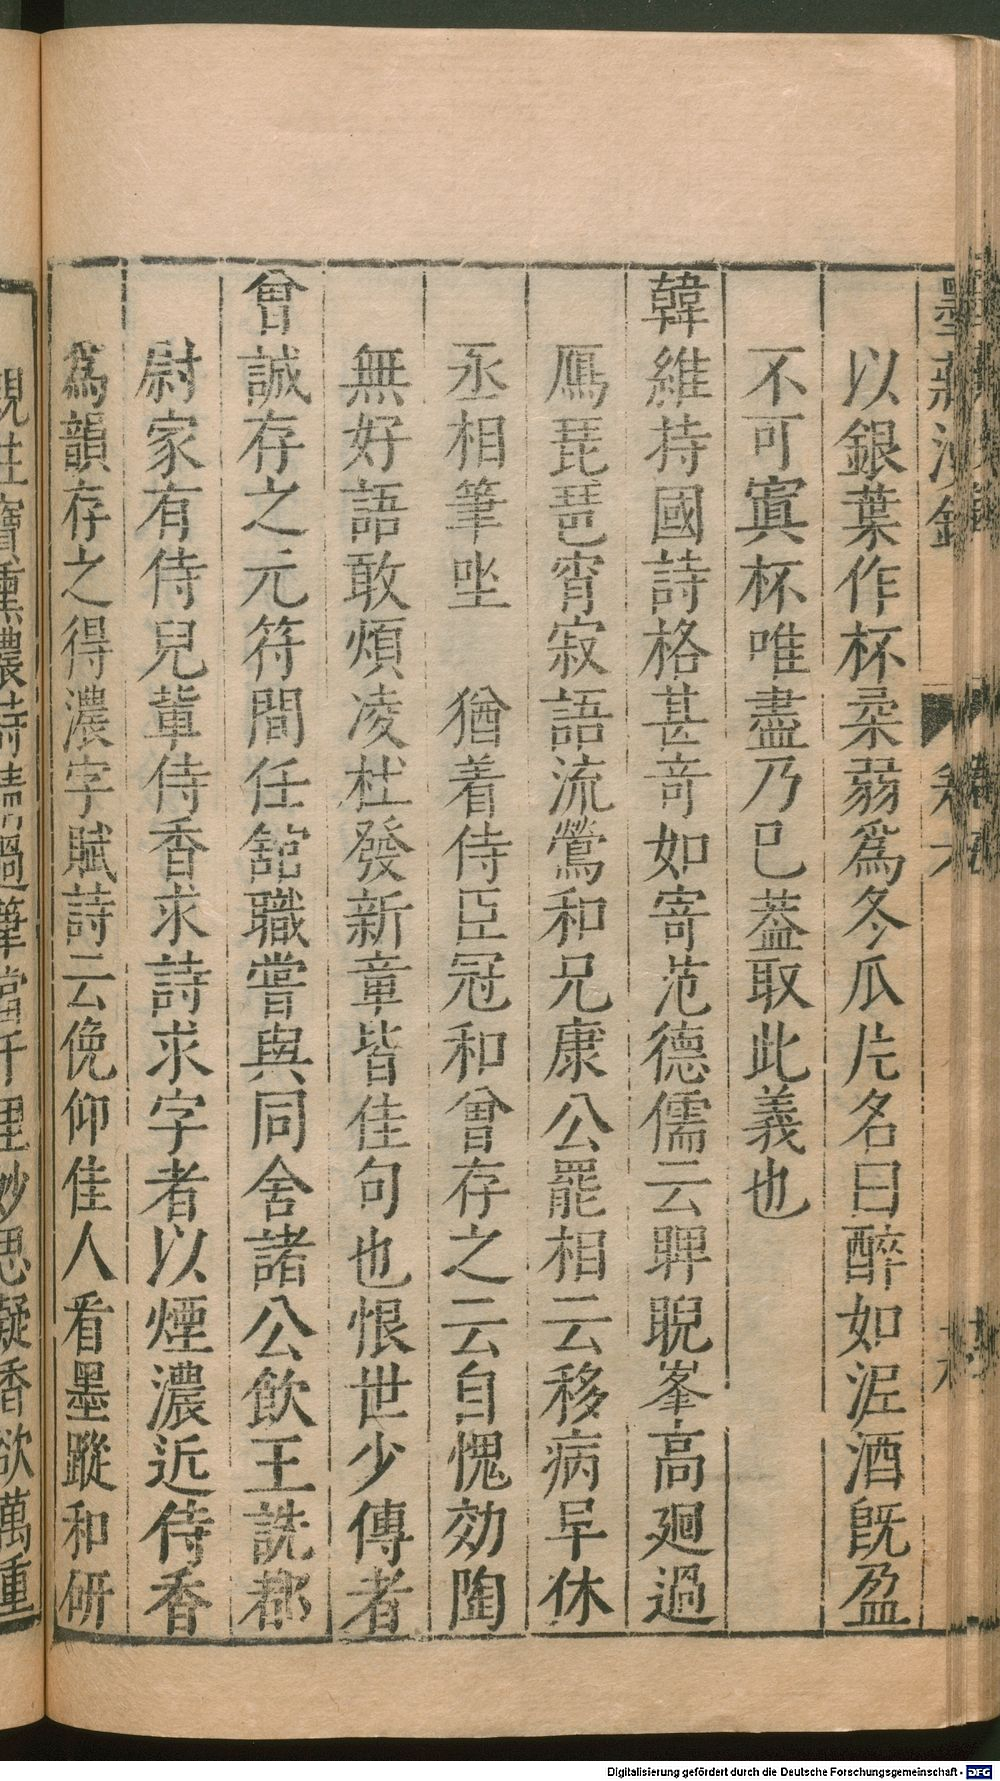 墨莊漫錄 卷六
以銀葉作杯柔弱爲冬瓜片名曰醉如泥酒旣盈
不可寘杯唯盡乃已葢取此義也
韓維持國詩格甚竒如寄范德儒云睥睨峯高廻過
鴈琵琶宵寂語流鶯和兄康公罷相云移病早休
丞相筆坐 猶着侍臣冠和曾存之云自愧効陶
無好語敢煩凌杜發新章皆佳句也恨世少傳者
曾誠存之元符間任舘職嘗與同舍諸公飲王詵都
尉家有侍兒軰侍香求詩求字者以煙濃近侍香
爲韻存之得濃字賦詩云俛仰佳人看墨蹤和研
親炷寶熏濃詩情過筆當千里妙思凝香欲萬重
Digitalisierung gefördert durch die Deutsche Forschungsgemeinschaft - DFG